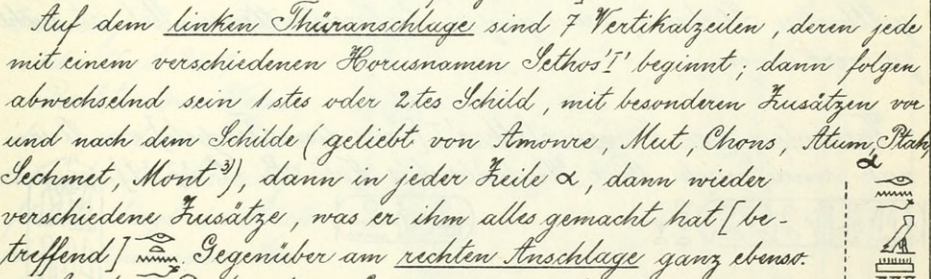 Auf dem linken Thüranschlage sind 7 Vertikalzeilen, deren jede
mit einem verschiedenen Horusnamen Sethos' I' beginnt; dann folgen
abwechselnd sein 1stes oder 2tes Schild, mit besonderen Zusätzen vor
und nach dem Schilde (geliebt von Amonre, Mut, Chons, Atum, Ptah,
Sechmet, Mont ³⁾), dann in jeder Zeile α, dann wieder
α
verschiedene Zusätze, was er ihm alles gemacht hat [be-
treffend] . Gegenüber am rechten Anschlage ganz ebenso.